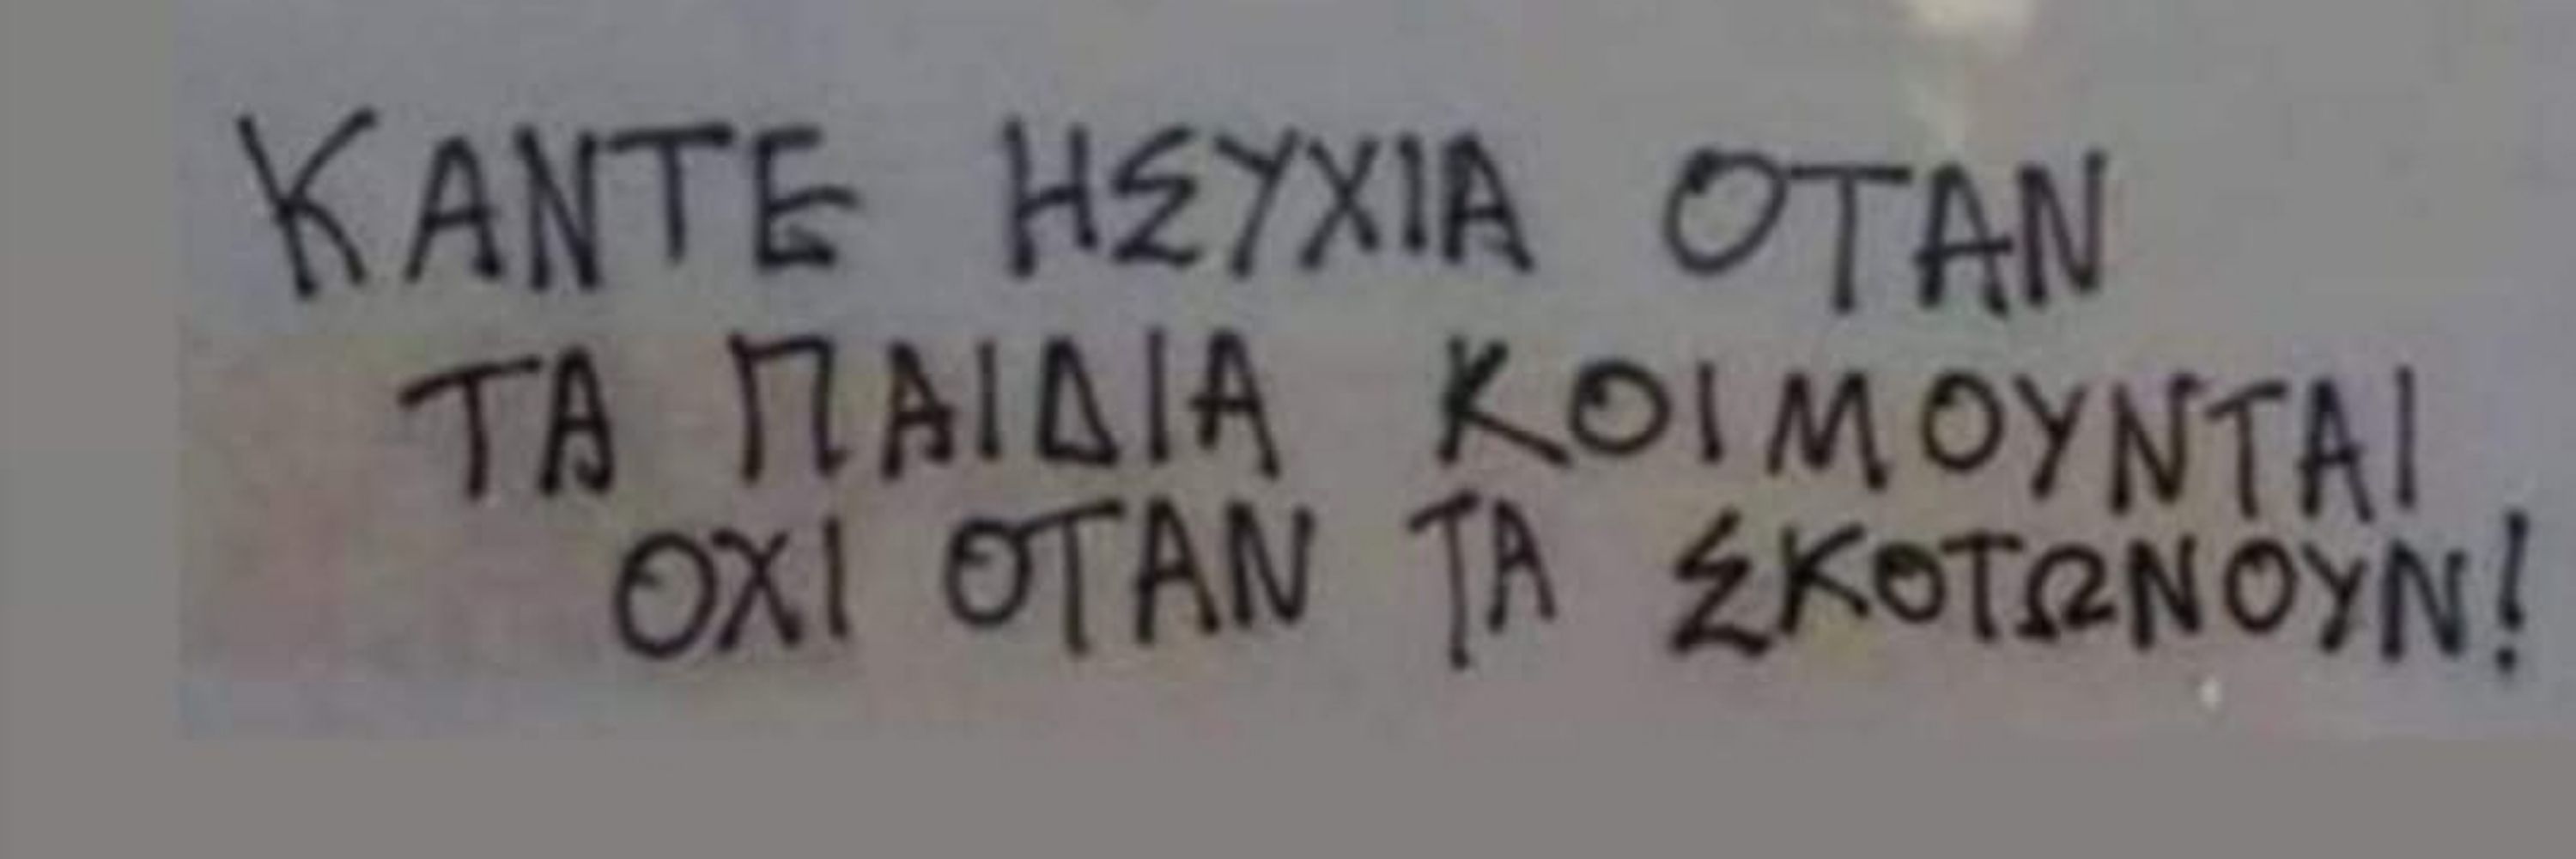 ΚΑΝΤΕ ΗΣΥΧΙΑ ΟΤΑΝ
ΤΑ ΠΑΙΔΙΑ ΚΟΙΜΟΥΝΤΑΙ
ΟΧΙ ΟΤΑΝ ΤΑ ΣΚΟΤΩΝΟΥΝ!